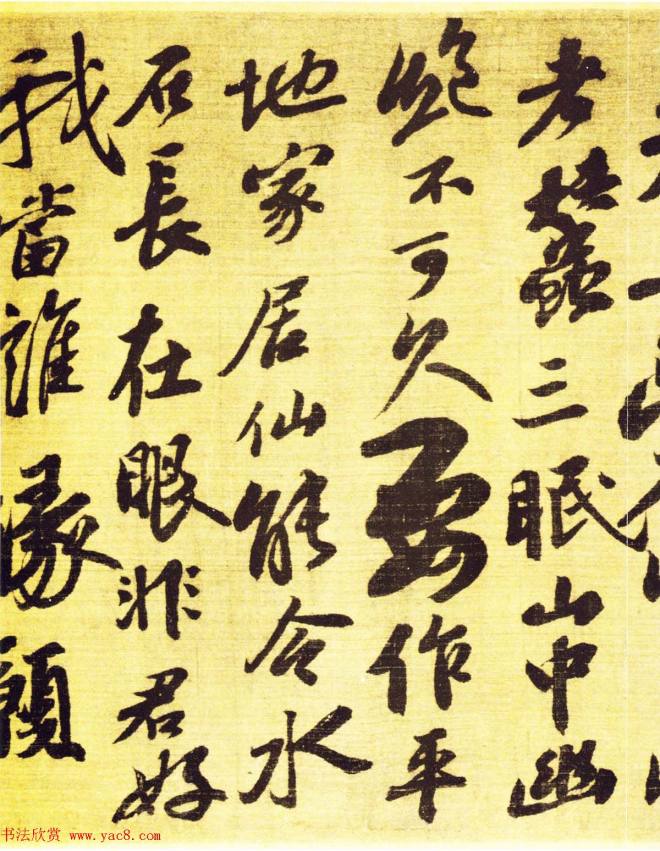 老蠶三眠山中幽
絕不可久要作平
地家居仙能令水
石長在眼非君好
我當誰緣願
书法欣赏 www.yac8.com